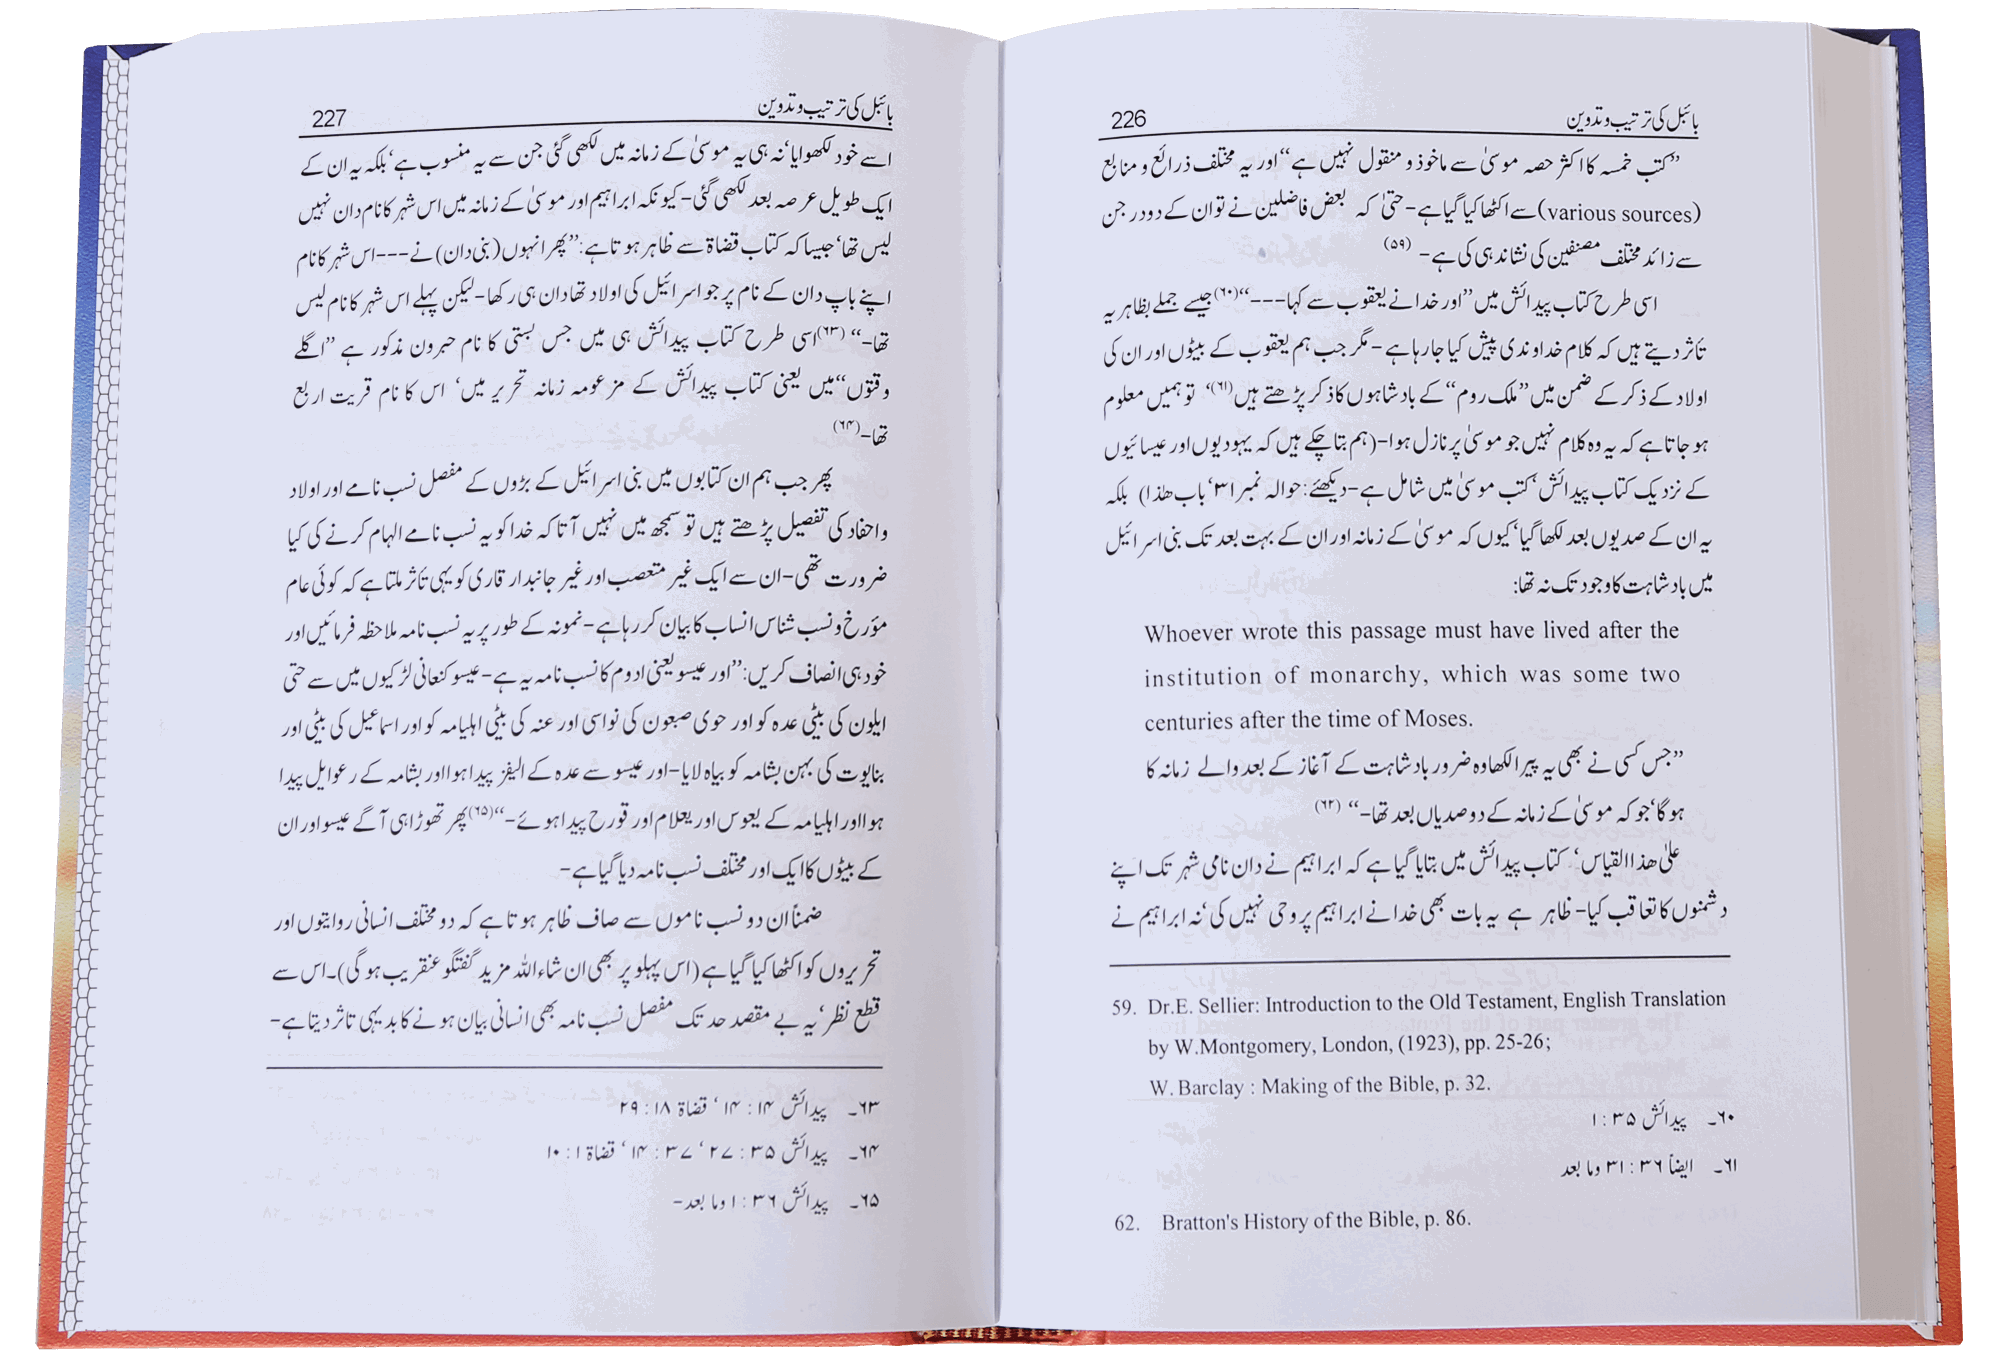 بائبل کی ترتیب و تدوین 226
”کتب خمسہ کا اکثر حصہ موسیٰ سے ماخوذ و منقول نہیں ہے“ اور یہ مختلف ذرائع و منابع
(various sources) سے اکٹھا کیا گیا ہے- حتیٰ کہ بعض فاضلین نے توان کے دو درجن
سے زائد مختلف مصنفین کی نشاندہی کی ہے- (۵۹)
اسی طرح کتاب پیدائش میں ”اور خدا نے یعقوب سے کہا---“(۶۰) جیسے جملے بظاہر یہ
تأثر دیتے ہیں کہ کلام خداوندی پیش کیا جارہا ہے- مگر جب ہم یعقوب کے بیٹوں اور ان کی
اولاد کے ذکر کے ضمن میں ”ملک روم“ کے بادشاہوں کا ذکر پڑھتے ہیں(۶۱)‘ تو ہمیں معلوم
ہو جاتا ہے کہ یہ وہ کلام نہیں جو موسیٰ پر نازل ہوا-(ہم بتا چکے ہیں کہ یہودیوں اور عیسائیوں
کے نزدیک کتاب پیدائش‘ کتب موسیٰ میں شامل ہے- دیکھئے: حوالہ نمبر ۳۱‘ باب ھٰذا) بلکہ
یہ ان کے صدیوں بعد لکھا گیا‘ کیوں کہ موسیٰ کے زمانہ اور ان کے بہت بعد تک بنی اسرائیل
میں بادشاہت کا وجود تک نہ تھا:
Whoever wrote this passage must have lived after the
institution of monarchy, which was some two
centuries after the time of Moses.
”جس کسی نے بھی یہ پیرا لکھا وہ ضرور بادشاہت کے آغاز کے بعد والے زمانہ کا
ہوگا‘ جو کہ موسیٰ کے زمانہ کے دو صدیاں بعد تھا-“ (۶۲)
علیٰ ھذا القیاس‘ کتاب پیدائش میں بتایا گیا ہے کہ ابراہیم نے دان نامی شہر تک اپنے
دشمنوں کا تعاقب کیا- ظاہر ہے یہ بات بھی خدا نے ابراہیم پر وحی نہیں کی‘ نہ ابراہیم نے
59. Dr.E. Sellier: Introduction to the Old Testament, English Translation
by W.Montgomery, London, (1923), pp. 25-26;
W. Barclay : Making of the Bible, p. 32.
۶۰۔ پیدائش ۳۵ : ۱
۶۱۔ ایضاً ۳۶ : ۳۱ وما بعد
62. Bratton's History of the Bible, p. 86.
بائبل کی ترتیب و تدوین 227
اسے خود لکھوایا‘ نہ ہی یہ موسیٰ کے زمانہ میں لکھی گئی جن سے یہ منسوب ہے‘ بلکہ یہ ان کے
ایک طویل عرصہ بعد لکھی گئی- کیونکہ ابراہیم اور موسیٰ کے زمانہ میں اس شہر کا نام دان نہیں
لیس تھا‘ جیسا کہ کتاب قضاۃ سے ظاہر ہوتا ہے: ”پھر انہوں (بنی دان) نے --- اس شہر کا نام
اپنے باپ دان کے نام پر جو اسرائیل کی اولاد تھا دان ہی رکھا- لیکن پہلے اس شہر کا نام لیس
تھا-“ (۶۳) اسی طرح کتاب پیدائش ہی میں جس بستی کا نام حبرون مذکور ہے ”اگلے
وقتوں“ میں یعنی کتاب پیدائش کے مزعومہ زمانہ تحریر میں‘ اس کا نام قریت اربع
تھا-(۶۴)
پھر جب ہم ان کتابوں میں بنی اسرائیل کے بڑوں کے مفصل نسب نامے اور اولاد
و احفاد کی تفصیل پڑھتے ہیں تو سمجھ میں نہیں آتا کہ خدا کو یہ نسب نامے الہام کرنے کی کیا
ضرورت تھی- ان سے ایک غیر متعصب اور غیر جانبدار قاری کو یہی تأثر ملتا ہے کہ کوئی عام
مؤرخ و نسب شناس انساب کا بیان کر رہا ہے- نمونہ کے طور پر یہ نسب نامہ ملاحظہ فرمائیں اور
خود ہی انصاف کریں: ”اور عیسو یعنی ادوم کا نسب نامہ یہ ہے- عیسو کنعانی لڑکیوں میں سے حتی
ایلون کی بیٹی عدہ کو اور حوی صبعون کی نواسی اور عنہ کی بیٹی اہلیامہ کو اور اسماعیل کی بیٹی اور
بنایوت کی بہن بشامہ کو بیاہ لایا- اور عیسو سے عدہ کے الیفز پیدا ہوا اور بشامہ کے رعوایل پیدا
ہوا اور اہلیامہ کے یعوس اور یعلام اور قورح پیدا ہوئے-“(۶۵) پھر تھوڑا ہی آگے عیسو اور ان
کے بیٹوں کا ایک اور مختلف نسب نامہ دیا گیا ہے-
ضمناً ان دو نسب ناموں سے صاف ظاہر ہوتا ہے کہ دو مختلف انسانی روایتوں اور
تحریروں کو اکٹھا کیا گیا ہے (اس پہلو پر بھی ان شاء اللہ مزید گفتگو عنقریب ہوگی)۔ اس سے
قطع نظر‘ یہ بے مقصد حد تک مفصل نسب نامہ بھی انسانی بیان ہونے کا بدیہی تاثر دیتا ہے-
۶۳۔ پیدائش ۱۴ : ۱۴ ‘ قضاۃ ۱۸ : ۲۹
۶۴۔ پیدائش ۳۵ : ۲۷ ‘ ۳۷ : ۱۴ ‘ قضاۃ ۱ : ۱۰
۶۵۔ پیدائش ۳۶ : ۱ وما بعد-